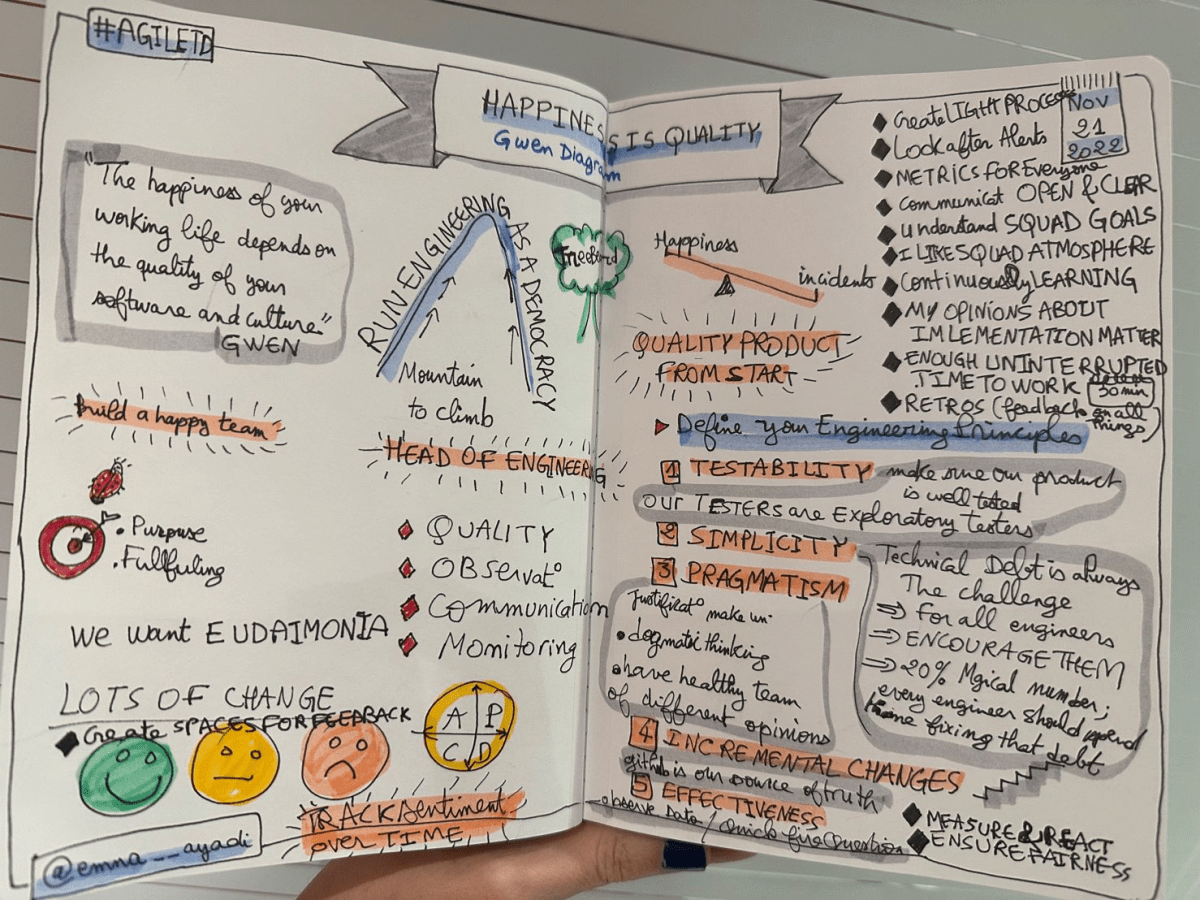 #AGILETD
HAPPINESS IS QUALITY
Gwen Diagram
"The happiness of your
working life depends on
the quality of your
software and culture."
GWEN
RUN ENGINEERING AS A DEMOCRACY
Mountain
to climb
build a happy team
HEAD OF ENGINEERING
• Purpose
• Fullfuling
◆ QUALITY
◆ OBservat°
◆ Communication
◆ Monitoring
We want EUDAIMONIA
LOTS OF CHANGE
◆ Create SPACES FOR FEEDBACK
A P
C D
TRACK Sentiment
over TIME
@emna__ayadi
Nov
21
2022
Happiness
incidents
QUALITY PRODUCT
FROM START
◆ Create LIGHT PROCESS
◆ Look after Alerts
◆ METRICS FOR Everyone
◆ Communicat OPEN & CLEAR
◆ Understand SQUAD GOALS
◆ I LIKE SQUAD ATMOSPHERE
◆ Continuously LEARNING
◆ MY OPINIONS ABOUT
IMLEMENTATION MATTER
◆ ENOUGH UNINTERRUPTED
TIME TO WORK
30 min
◆ RETROS (feedback on all
things)
▶ Define your Engineering Principles
1 TESTABILITY make sure our product
is well tested
OUR TESTERS are Exploratory testers
2 SIMPLICITY
3 PRAGMATISM
Justificat° make un-
• dogmatic thinking
• have healthy team
of different opinions
Technical Debt is always
The challenge
⇒ For all engineers
⇒ ENCOURAGE THEM
⇒ 20% Mgical number;
every engineer should spend
time fixing that debt
4 INCREMENTAL CHANGES
github is our source of truth
5 EFFECTIVENESS
observe Data / Quick fire Question
◆ MEASURE & REACT
◆ ENSURE FAIRNESS